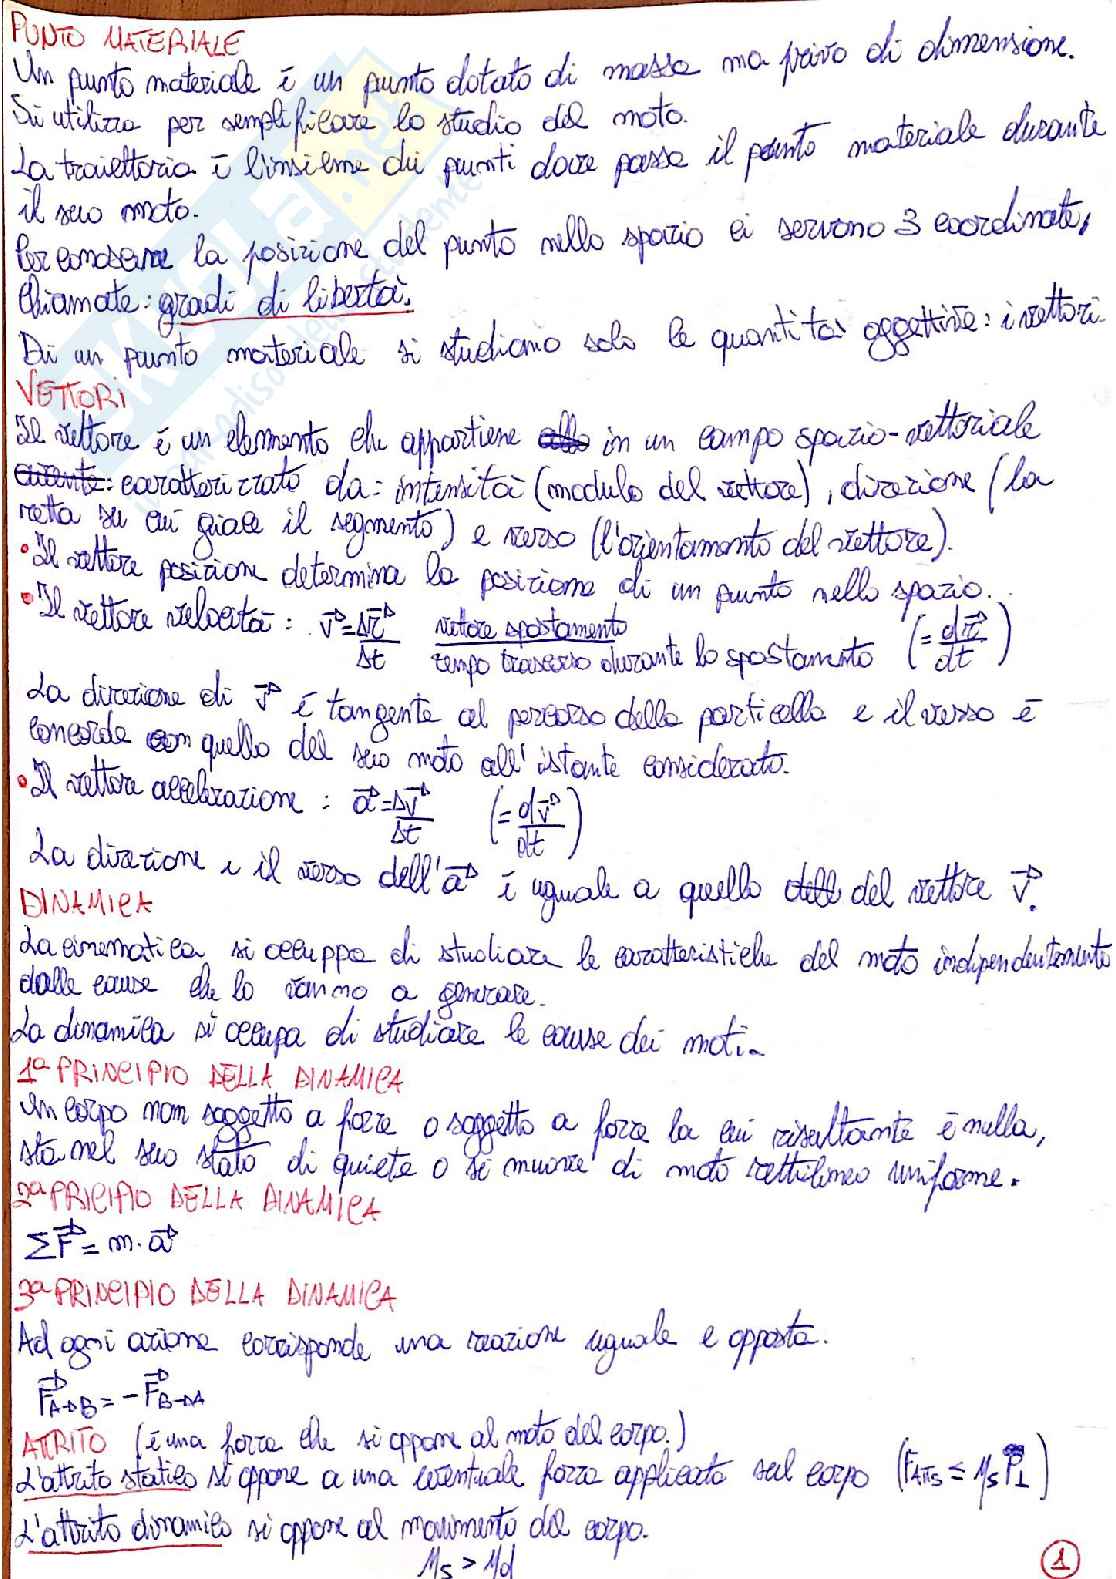 PUNTO MATERIALE
Un punto materiale è un punto dotato di massa ma privo di dimensione.
Si utilizza per semplificare lo studio del moto.
La traiettoria è l'insieme dei punti dove passa il punto materiale durante
il suo moto.
Per conoscere la posizione del punto nello spazio ci servono 3 coordinate,
chiamate: gradi di libertà.
Di un punto materiale si studiano solo le quantità oggettive: i vettori.
VETTORI
Il vettore è un elemento che appartiene in un campo spazio-vettoriale
caratterizzato da: intensità (modulo del vettore), direzione (la
retta su cui giace il segmento) e verso (l'orientamento del vettore).
• Il vettore posizione determina la posizione di un punto nello spazio.
• Il vettore velocità: v⃗ = Δr⃗/Δt vettore spostamento / tempo trascorso durante lo spostamento (= dr⃗/dt)
La direzione di v⃗ è tangente al percorso della particella e il verso è
concorde con quello del suo moto all'istante considerato.
• Il vettore accelerazione: a⃗ = Δv⃗/Δt (= dv⃗/dt)
La direzione e il verso dell'a⃗ è uguale a quello del vettore v⃗.
DINAMICA
La cinematica si occuppa di studiare le caratteristiche del moto indipendentemente
dalle cause che lo vanno a generare.
La dinamica si occupa di studiare le cause dei moti.
1ª PRINCIPIO DELLA DINAMICA
Un corpo non soggetto a forze o soggetto a forze la cui risultante è nulla,
sta nel suo stato di quiete o si muove di moto rettilineo uniforme.
2ª PRICIPIO DELLA DINAMICA
ΣF⃗ = m · a⃗
3ª PRINCIPIO DELLA DINAMICA
Ad ogni azione corrisponde una reazione uguale e opposta.
F⃗A→B = - F⃗B→A
ATTRITO (è una forza che si oppone al moto del corpo.)
L'attrito statico si oppone a una eventuale forza applicata sul corpo (FATTs ≤ μs P⊥)
L'attrito dinamico si oppone al movimento del corpo.
μs > μd
1